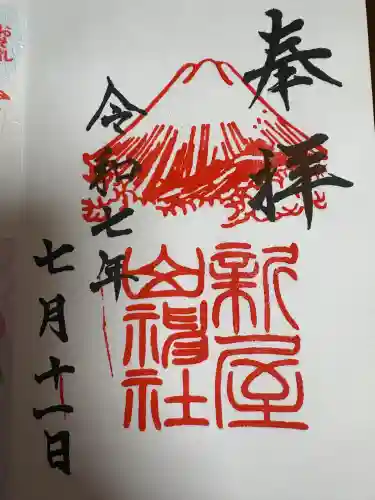 奉拝
令和七年
七月十一日
新屋
山神社